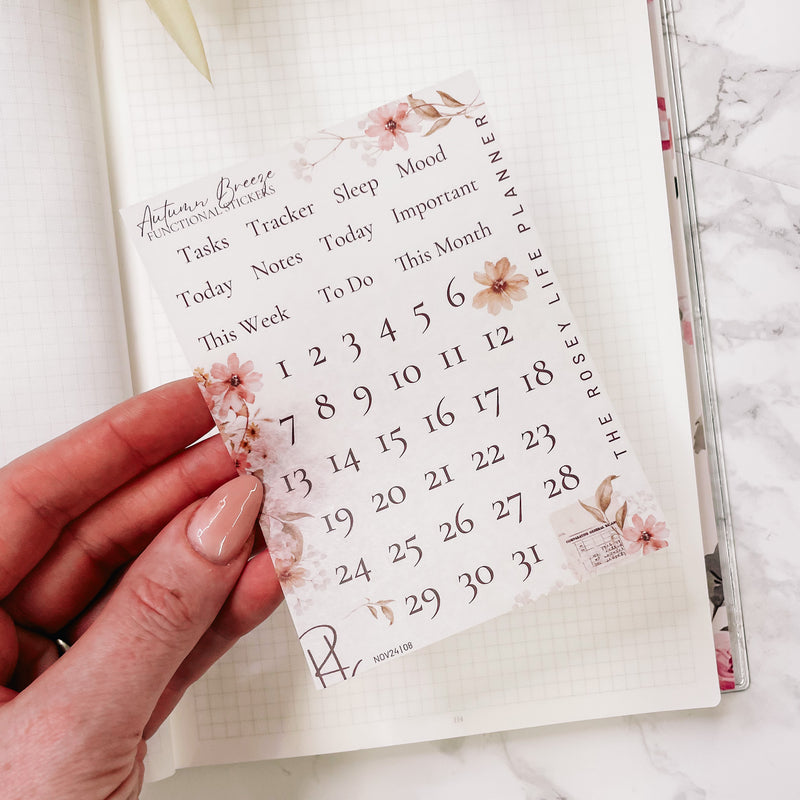 Autumn Breeze
FUNCTIONAL STICKERS
Tasks Tracker Sleep Mood
Today Notes Today Important
This Week To Do This Month
1 2 3 4 5 6
7 8 9 10 11 12
13 14 15 16 17 18
19 20 21 22 23
24 25 26 27 28
29 30 31
THE ROSEY LIFE PLANNER
NOV24|08